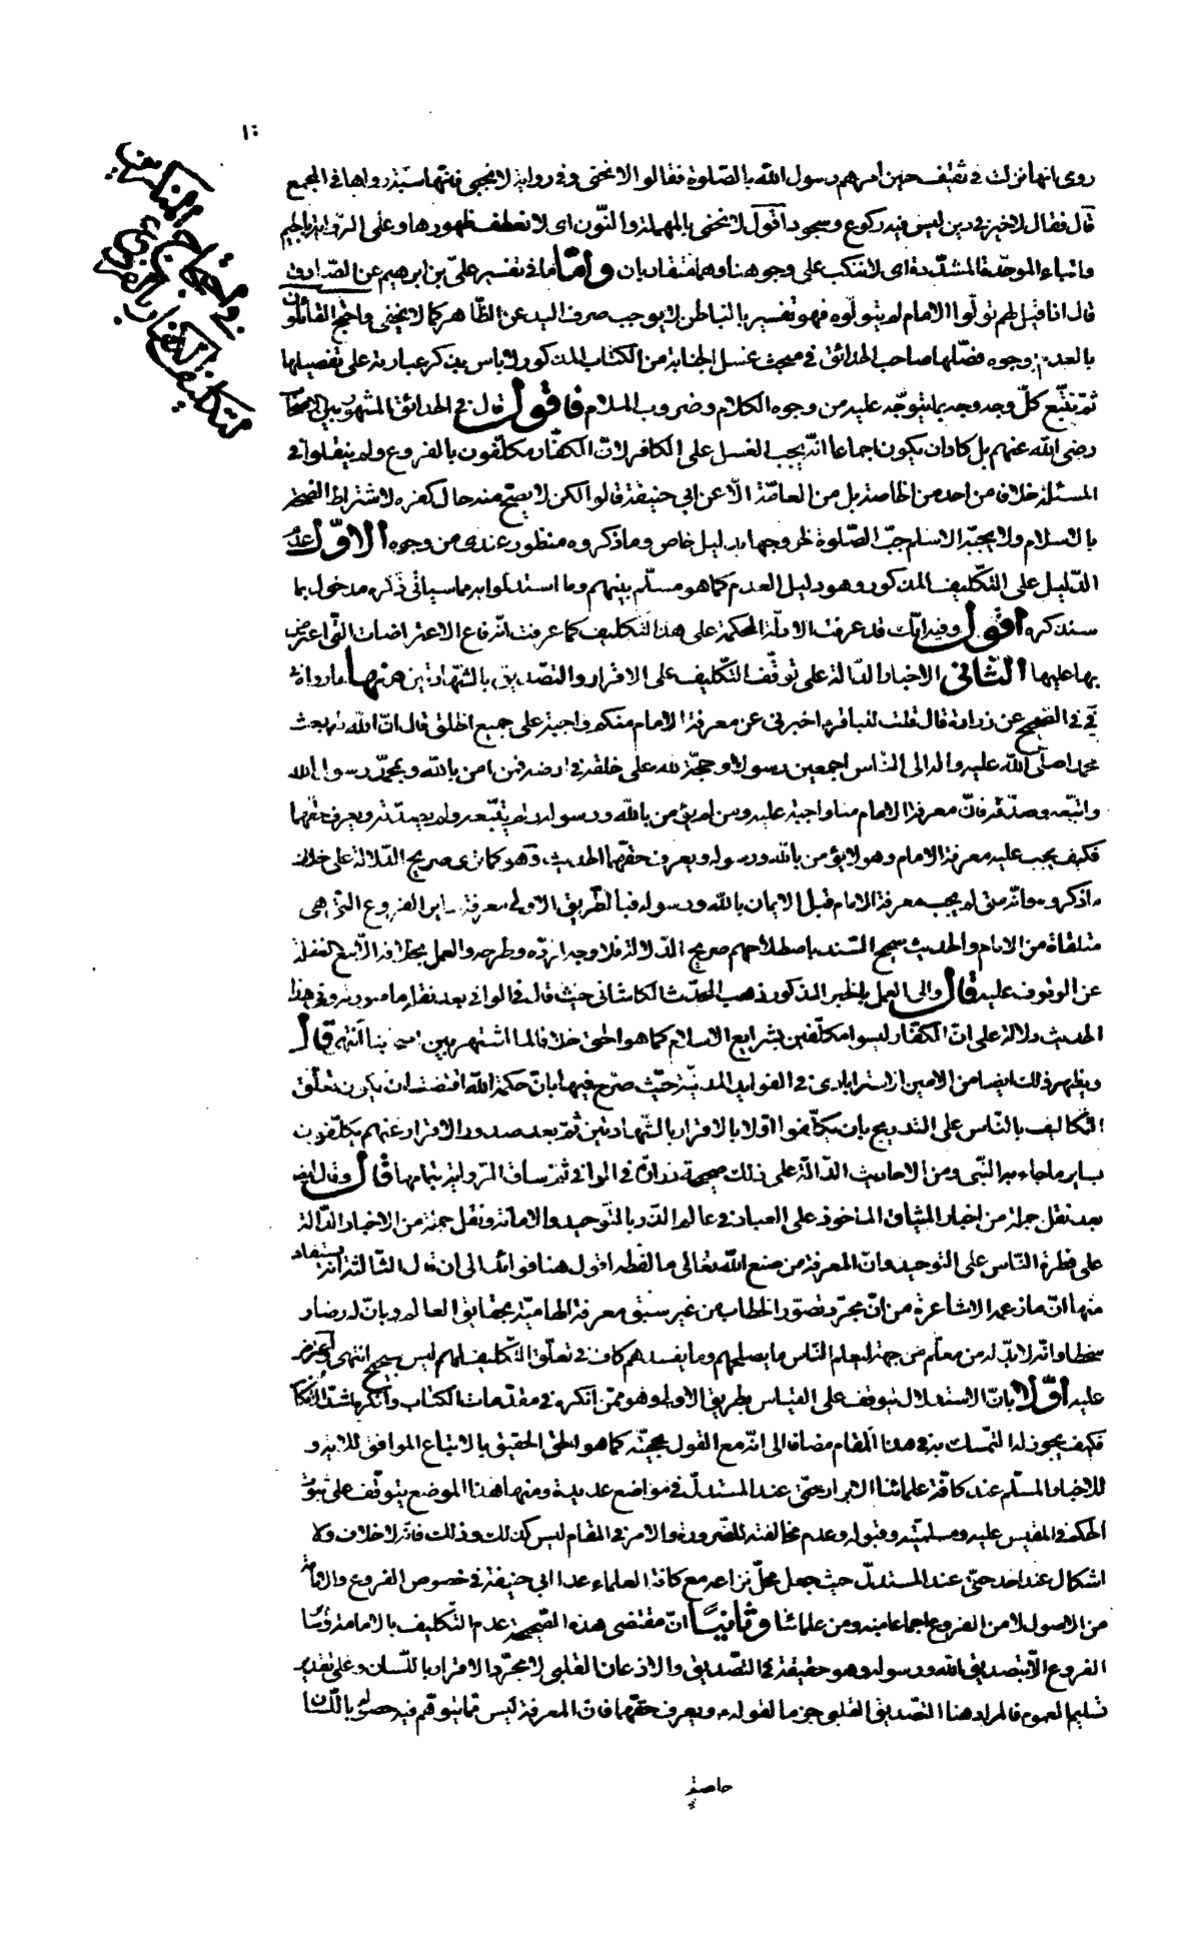 ١٠
في احتجاج المنكرين
لتكليف الكفار بالفروع
روى انها نزلت في ثقيف حين امرهم رسول الله بالصّلوة فقالوا لا ننحنى وفي رواية لا نجبى فانّها سبّة رواها في المجمع
قال فقال لا خير في دين ليس فيه ركوع وسجود اقول لا ننحنى بالمهملة والنّون اى لا نعطف ظهورها وعلى الرّواية بالجيم
والباء الموحّدة المشدّدة اى لا ننكب على وجوهنا وهما متقاربان وامّا ما في تفسير علىّ بن ابرهيم عن الصّادق
قال اذا قيل لهم تولّوا الامام لم يتولّوه فهو تفسير بالباطن لا يوجب صرف اليد عن الظّاهر كما لا يخفى واحتج القائلون
بالعدم بوجوه فصّلها صاحب الحدائق في مبحث غسل الجنابة من الكتاب المذكور لا باس بذكر عبارته على تفصيلها
ثمّ نتبّع كلّ وجه وجه بما يتوجّه عليه من وجوه الكلام وضروب الملام فاقول قال في الحدائق المشهور بين الاصحاب
رضى الله عنهم بل كاد ان يكون اجماعا انّه يجب الغسل على الكافر لانّ الكفّار مكلّفون بالفروع ولم ينقلوا في
المسئلة خلافا من احد من الخاصّة بل من العامّة الّا عن ابى حنيفة قالوا لكن لا يصحّ منه حال كفره لاشتراط الصّحّة
بالاسلام ولا يجبّه الاسلام جبّ الصّلوة لخروجها بدليل خاص وما ذكروه منظور عندى من وجوه الاوّل عدم
الدّليل على التكليف المذكور وهو دليل العدم كما هو مسلّم بينهم وما استدلّوا به مما سيأتى ذكره مدخول بما
سنذكره اقول وفيه انّك قد عرفت الادلّة المحكمة على هذا التكليف كما عرفت اندفاع الاعتراضات الّتى اعترض
بها عليها الثّانى الاخبار الدّالة على توقّف التّكليف على الاقرار والتصديق بالشّهادتين منها ما رواه
في في الصّحيح عن زرارة قال قلت للباقر ع اخبرنى عن معرفة الامام منكم واجبة على جميع الخلق قال انّ الله تع بعث
محمدا صلّى الله عليه واله الى النّاس اجمعين رسولا وحجّة لله على خلقه في ارضه فمن امن بالله وبمحمّد رسول الله
واتبعه وصدّقه فانّ معرفة الامام منّا واجبة عليه ومن لم يؤمن بالله ورسوله ولم يتّبعه ولم يصدّقه ويعرف حقّهما
فكيف يجب عليه معرفة الامام وهو لا يؤمن بالله ورسوله ويعرف حقّهما الحديث وهو كما ترى صريح الدّلالة على خلاف
ما ذكروه وانّه متى لم يجب معرفة الامام قبل الايمان بالله ورسوله فبالطّريق الاولى معرفة ساير الفروع التى هى
متلقاة من الامام والحديث صحيح السّند باصطلاحهم صريح الدّلالة فلا وجه لردّه وطرحه والعمل بخلافه الّا مع الغفلة
عن الوقوف عليه قال والى العمل بالخبر المذكور ذهب المحدّث الكاشانى حيث قال في الوافى بعد نقله ما صورته وفي هذا
الحديث دلالة على انّ الكفّار ليسوا مكلّفين بشرايع الاسلام كما هو الحق خلافا لما اشتهر بين اصحابنا انتهى قال
ويظهر ذلك ايضا من الامين الاسترابادى في الفوايد المدنيّة حيث صرّح فيها بانّ حكمة الله اقتضت ان يكون تعلّق
التكاليف بالنّاس على التدريج بان يكلّفوا اوّلا بالاقرار بالشّهادتين ثمّ بعد صدور الاقرار عنهم يكلّفون
بساير ما جاء به النّبى ومن الاحاديث الدّالّة على ذلك صحيحة زرارة في الوافى ثمّ ساق الرّواية بتمامها قال وقال ايضا
بعد نقل جملة من اخبار الميثاق الماخوذ على العباد في عالم الذّر بالتّوحيد والامامة ونقل جملة من الاخبار الدّالة
على فطرة النّاس على التوحيد وانّ المعرفة من صنع الله تعالى ما لفظه اقول هنا فوائد الى ان قال الثّالثة انّه يستفاد
منها انّ ما زعمه الاشاعرة من انّ مجرّد تصوّر الخطاب من غير سبق معرفة الهاميّة بحقايق العالم وبانّ له رضا و
سخطا وانّه لا بدّ له من معلّم من جهته ليعلم النّاس ما يصلحهم وما يفسدهم كاف في تعلّق التّكليف بهم ليس بصحيح انتهى واعترض
عليه اوّلا بانّ الاستدلال يتوقف على القياس بطريق الاولى وهو ممّن انكره في مقدّمات الكتاب وانكره اشدّ الانكار
فكيف يجوز له التمسّك به في هذا المقام مضافا الى انّه مع القول بحجيّته كما هو الحق الحقيق بالاتباع الموافق للاية و
للاخبار المسلّم عند كافّة علمائنا الابرار حتّى عند المستدلّ في مواضع عديدة ومنها هذا الموضع يتوقّف على ثبوت
الحكم في المقيس عليه ومسلميّته وقبوله وعدم مخالفته للضرورة والامر في المقام ليس كذلك وذلك فانّه لا خلاف ولا
اشكال عند احد حتّى عند المستدلّ حيث جعل محلّ نزاعه مع كافة العلماء عدا ابى حنيفة في خصوص الفروع والامامة
من الاصول لا من الفروع اجماعا منه ومن علمائنا وثانيًا انّ مقتضى هذه الصّحيحة عدم التّكليف بالامامة وسائر
الفروع الّا بتصديق الله ورسوله وهو حقيقة في التّصديق والاذعان القلبى لا مجرّد الاقرار باللّسان وعلى تقدير
تسليم العموم فالمراد هنا التصديق القلبى جزما لقوله ع ويعرف حقّهما فانّ المعرفة ليس ممّا يتوهّم فيه حصوله باللّسان
حاصله